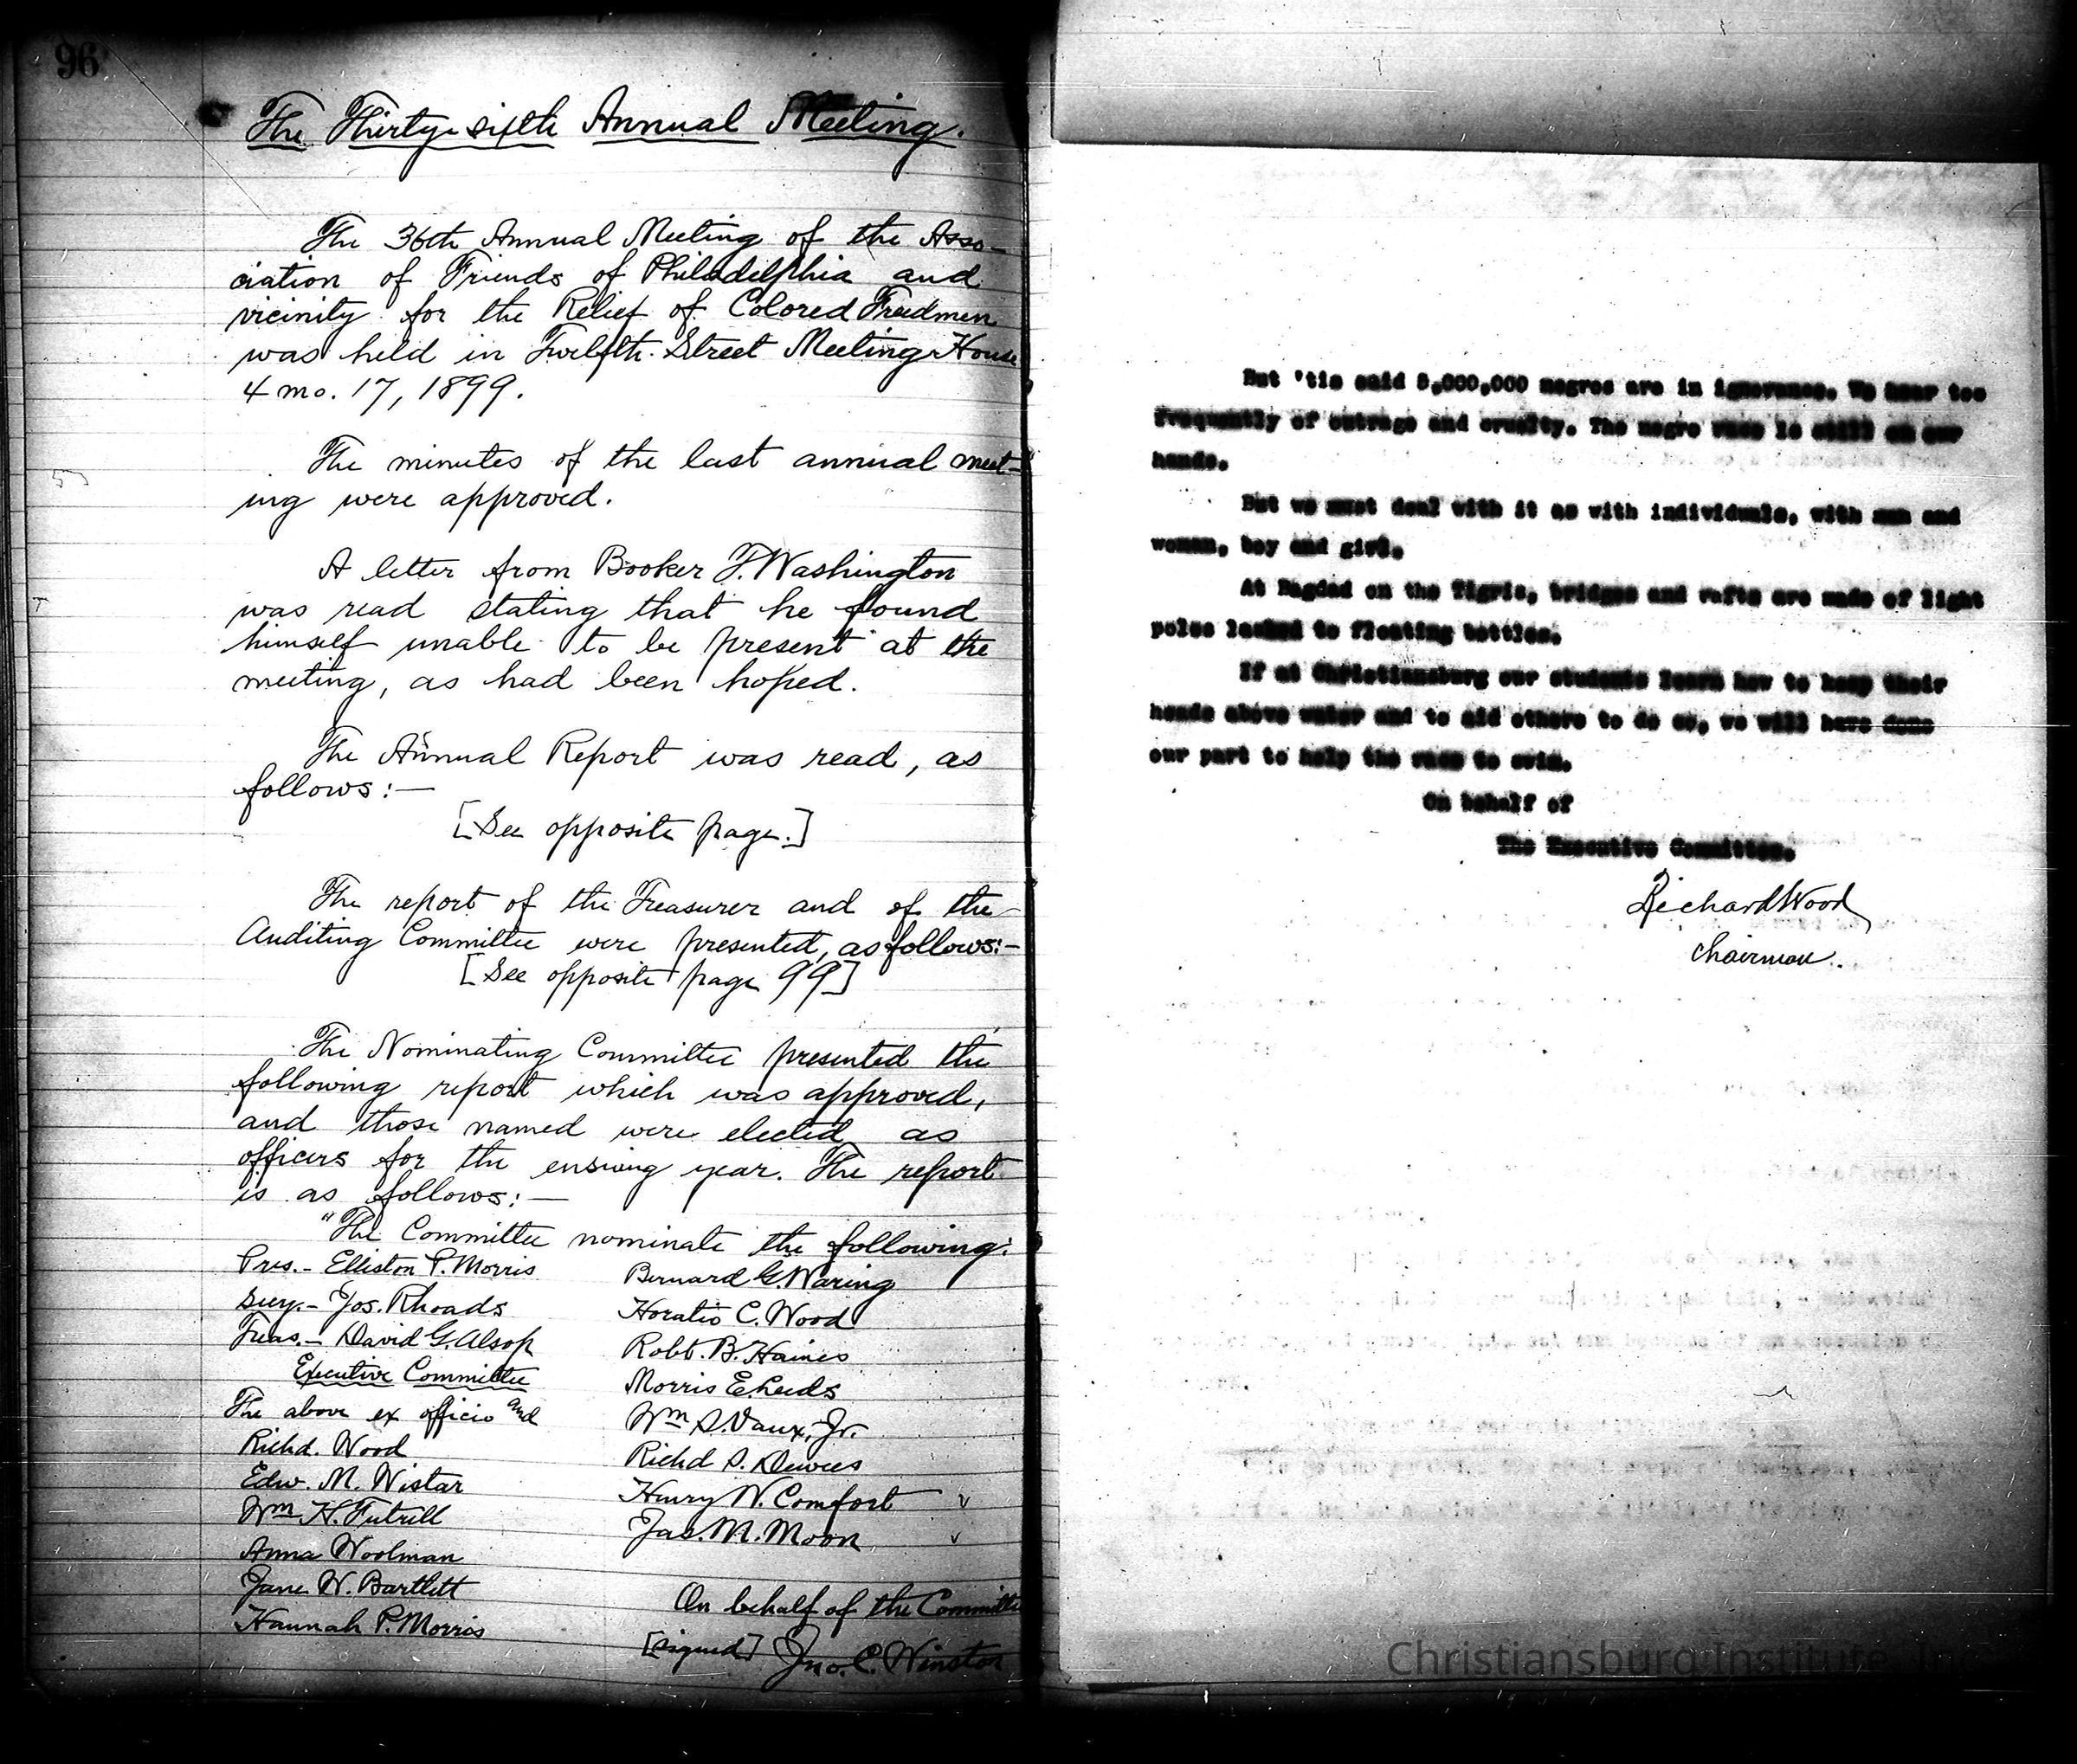 96
The Thirty-sixth Annual Meeting.
The 36th Annual Meeting of the Asso-
ciation of Friends of Philadelphia and
vicinity for the Relief of Colored Freedmen
was held in Twelfth Street Meeting House
4 mo. 17, 1899.
The minutes of the last annual meet-
ing were approved.
A letter from Booker T. Washington
was read stating that he found
himself unable to be present at the
meeting, as had been hoped.
The Annual Report was read, as
follows:—
[See opposite page.]
The report of the Treasurer and of the
Auditing Committee were presented, as follows:—
[See opposite page 99]
The Nominating Committee presented the
following report which was approved,
and those named were elected as
officers for the ensuing year. The report
is as follows:—
"The Committee nominate the following:
Pres.- Elliston P. Morris
Secy.- Jos. Rhoads
Treas.- David G. Alsop
Executive Committee
The above ex officio and
Richd. Wood
Edw. M. Wistar
Wm H. Futrell
Anna Woolman
Jane W. Bartlett
Hannah P. Morris
Bernard G. Waring
Horatio C. Wood
Robt. B. Haines
Morris E. Leeds
Wm S. Vaux, Jr.
Richd S. Dewees
Henry W. Comfort ✓
Jas. M. Moon ✓
On behalf of the Committee
[signed] Jno. C. Winston
But 'tis said 5,000,000 negros are in ignorance. We hear too
frequently of outrage and cruelty. The negro race is still on our
hands.
But we must deal with it as with individuals, with man and
woman, boy and girl.
At Bagdad on the Tigris, bridges and rafts are made of light
poles lashed to floating bottles.
If at Christiansburg our students learn how to keep their
heads above water and to aid others to do so, we will have done
our part to help the race to swim.
On behalf of
The Executive Committee.
Richard Wood
Chairman.
Christiansburg Institute, Inc